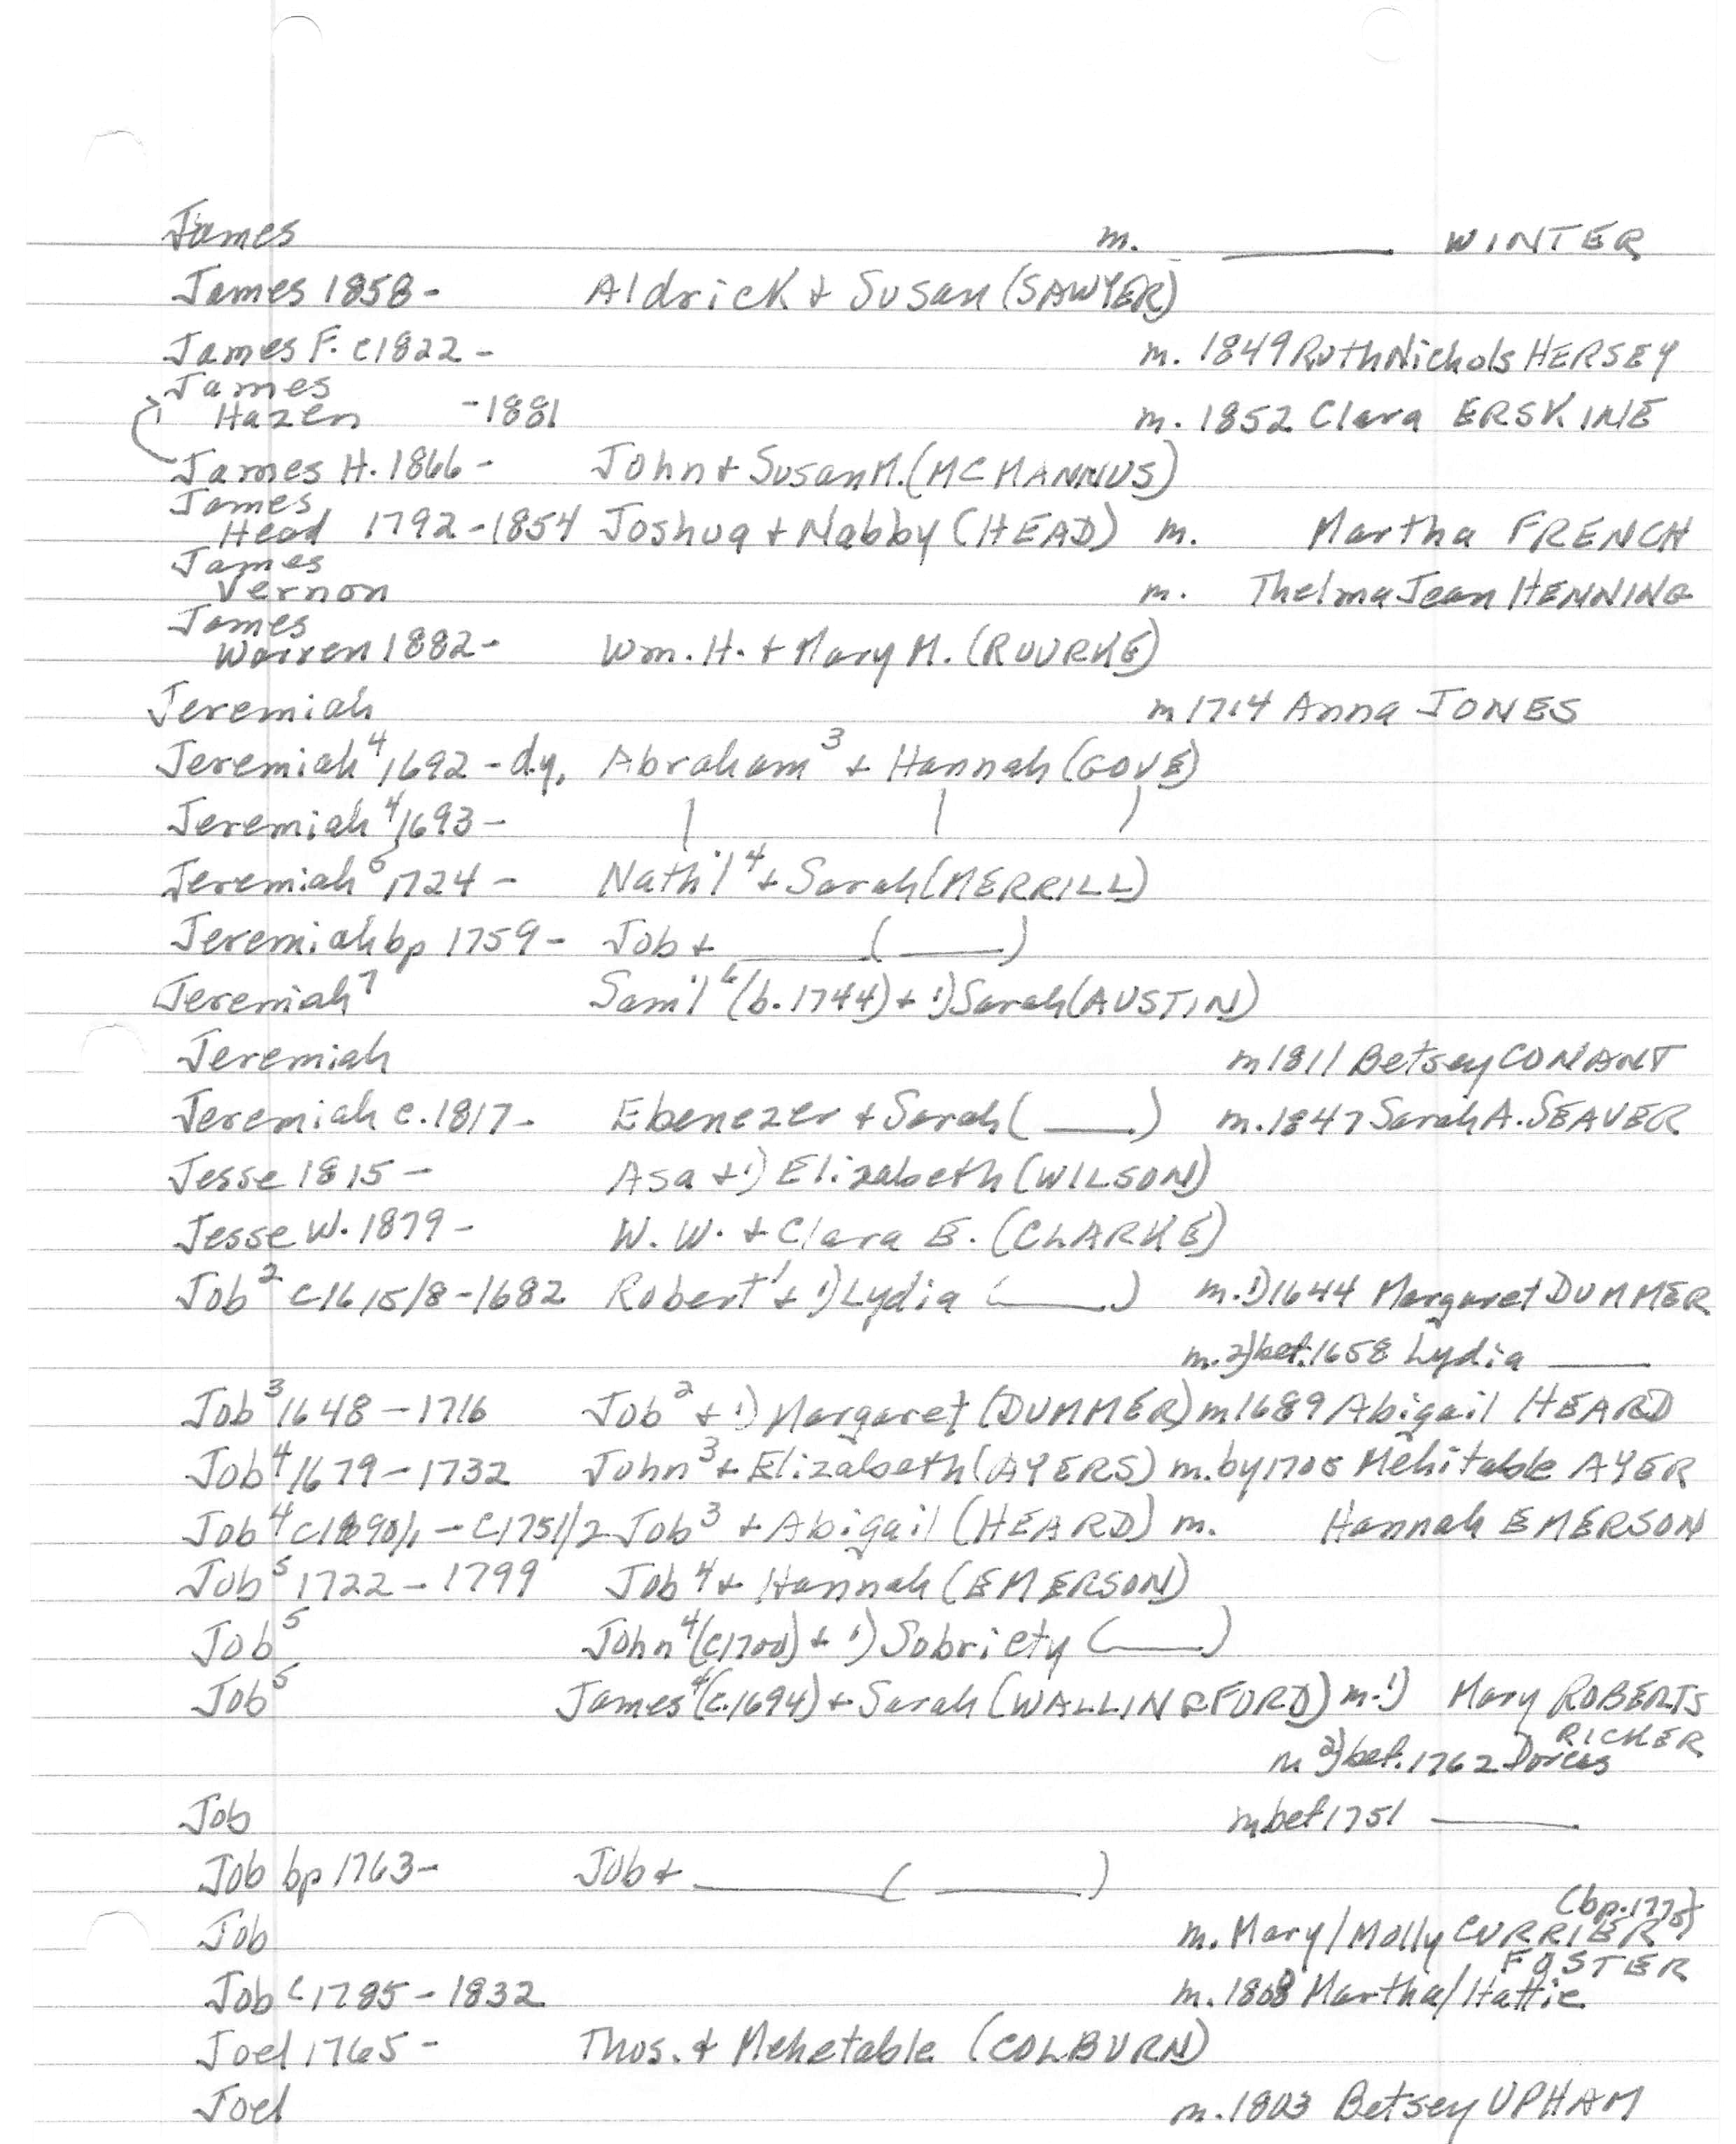 James m. ____ WINTER
James 1858- Aldrick + Susan (SAWYER)
James F. c1822- m. 1849 Ruth Nichols HERSEY
James
Hazen -1881 m. 1852 Clara ERSKINE
James H. 1866- John + Susan M. (MCMANNUS)
James
Head 1792-1854 Joshua + Nabby (HEAD) m. Martha FRENCH
James
Vernon m. Thelma Jean HENNING
James
Warren 1882- Wm. H. + Mary M. (ROURKE)
Jeremiah m 1714 Anna JONES
Jeremiah⁴ 1692 - d.y. Abraham³ + Hannah (GOVE)
Jeremiah⁴ 1693- | | )
Jeremiah⁵ 1724 - Nath'l⁴ + Sarah (MERRILL)
Jeremiah bp 1759- Job + ____ ( ____ )
Jeremiah⁷ Sam'l⁶ (b. 1744) + 1) Sarah (AUSTIN)
Jeremiah m 1811 Betsey CONANT
Jeremiah c. 1817- Ebenezer + Sarah ( ____ ) m. 1847 Sarah A. SEAVER
Jesse 1815 - Asa + 1) Elizabeth (WILSON)
Jesse W. 1879- W. W. + Clara E. (CLARKE)
Job² c1615/8-1682 Robert¹ + 1) Lydia ( ____ ) m. 1) 1644 Margaret DUMMER
m. 2) bef. 1658 Lydia ____
Job³ 1648-1716 Job² + 1) Margaret (DUMMER) m 1689 Abigail HEARD
Job⁴ 1679-1732 John³ + Elizabeth (AYERS) m. by 1705 Mehitable AYER
Job⁴ - c1751/2 Job³ + Abigail (HEARD) m. Hannah EMERSON
Job⁵ 1722-1799 Job⁴ + Hannah (EMERSON)
Job⁵ John⁴ (c1700) + 1) Sobriety ( ____ )
Job⁵ James⁴ (c.1694) + Sarah (WALLINGFORD) m. 1) Mary ROBERTS
RICKER
m 2) bef. 1762 Dorcas
Job m bef 1751 ____
Job bp 1763- Job + ____ ( ____ )
(bp. 1775)
Job m. Mary/Molly CURRIER
FOSTER
Job c1785-1832 m. 1808 Martha/Hattie
Joel 1765- Thos. + Mehetable (COLBURN)
Joel m. 1803 Betsey UPHAM